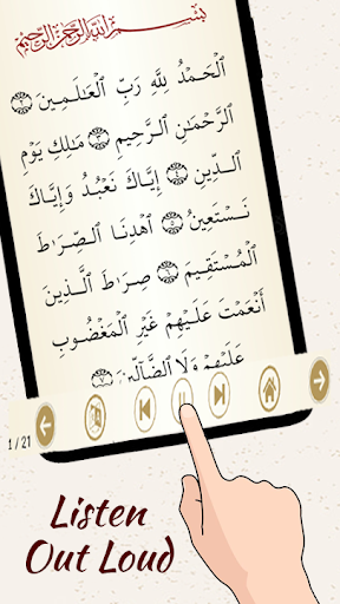 بِسْمِ اللَّهِ الرَّحْمَٰنِ الرَّحِيمِ
ٱلْحَمْدُ لِلَّهِ رَبِّ ٱلْعَـٰلَمِينَ ٢
ٱلرَّحْمَـٰنِ ٱلرَّحِيمِ ٣ مَـٰلِكِ يَوْمِ
ٱلدِّينِ ٤ إِيَّاكَ نَعْبُدُ وَإِيَّاكَ
نَسْتَعِينُ ٥ ٱهْدِنَا ٱلصِّرَٰطَ
ٱلْمُسْتَقِيمَ ٦ صِرَٰطَ ٱلَّذِينَ
أَنْعَمْتَ عَلَيْهِمْ غَيْرِ ٱلْمَغْضُوبِ
عَلَيْهِمْ وَلَا ٱلضَّآلِّينَ ٧
1 / 21
Listen
Out Loud